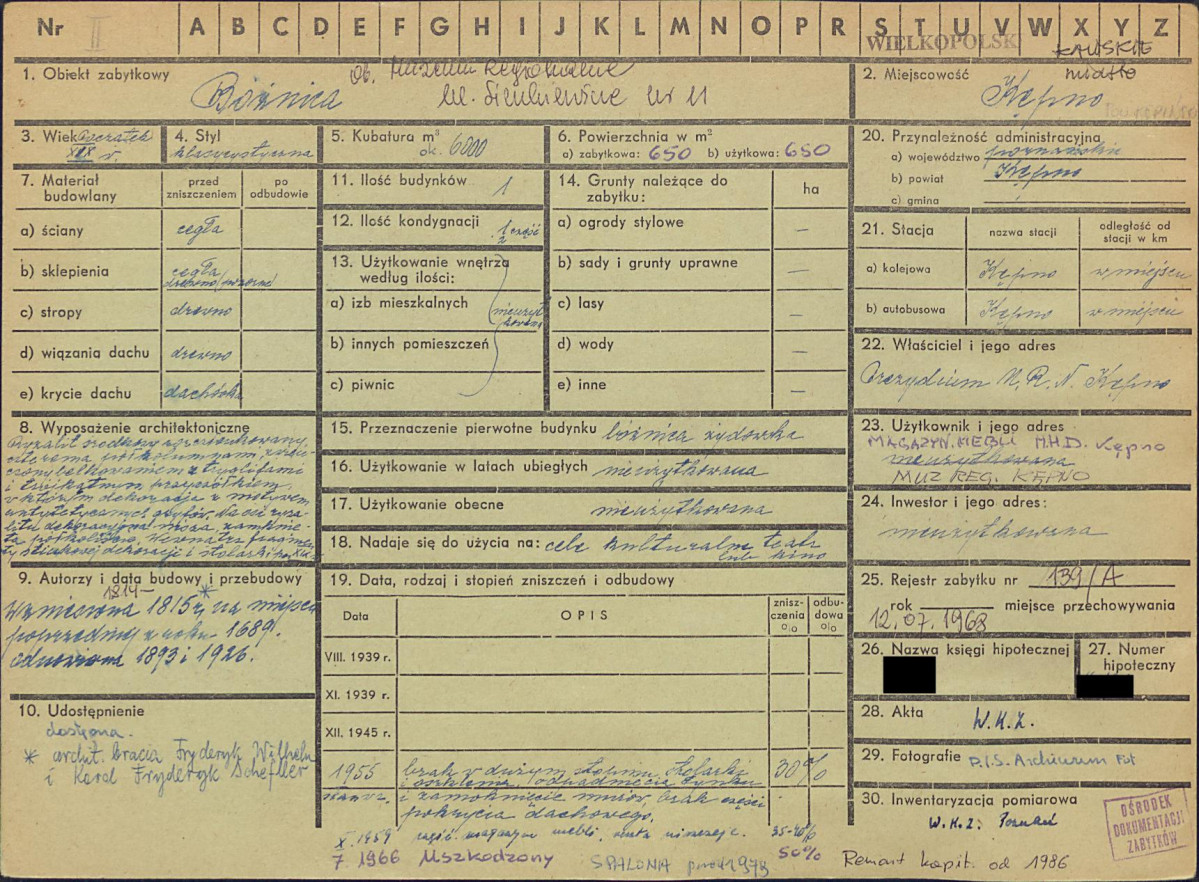 Nr II A B C D E F G H I J K L M N O P R S T U V W X Y Z
WIELKOPOLSK
KALISKIE
1. Obiekt zabytkowy
Bożnica
ob. Muzeum Regionalne
ul. Sienkiewicza nr 11
2. Miejscowość
miasto
Kępno
3. Wiek początek
XIX w.
4. Styl
klasycystyczna
5. Kubatura m³
ok. 6000
6. Powierzchnia w m²
a) zabytkowa: 650 b) użytkowa: 650
20. Przynależność administracyjna
a) województwo poznańskie
b) powiat Kępno
c) gmina
7. Materiał budowlany
przed zniszczeniem
po odbudowie
a) ściany cegła
b) sklepienia cegła
drewno/pozorne
c) stropy drewno
d) wiązania dachu drewno
e) krycie dachu dachówka
11. Ilość budynków 1
12. Ilość kondygnacji 1 część
2
13. Użytkowanie wnętrza
według ilości:
a) izb mieszkalnych
b) innych pomieszczeń
c) piwnic
nieużyt
kowana
14. Grunty należące do
zabytku:
ha
a) ogrody stylowe –
b) sady i grunty uprawne –
c) lasy –
d) wody –
e) inne –
21. Stacja
nazwa stacji
odległość od
stacji w km
a) kolejowa Kępno w miejscu
b) autobusowa Kępno w miejscu
22. Właściciel i jego adres
Prezydium M. R. N. Kępno
8. Wyposażenie architektoniczne
Ryzalit środkowy rozczłonkowany
czterema półkolumnami, zwień-
czony belkowaniem z tryglifami
i trójkątnym przyczółkiem,
w którym dekoracja z motywem
Na osi ryza-
litu dekoracyjna nisza, zamknię-
ta półkolisto. Wewnątrz fragmen-
ty stiukowej dekoracji i stolarki
15. Przeznaczenie pierwotne budynku bóżnica żydowska
16. Użytkowanie w latach ubiegłych nieużytkowana
17. Użytkowanie obecne nieużytkowana
18. Nadaje się do użycia na: cele kulturalne teatr
lub kino
23. Użytkownik i jego adres
MAGAZYN. MEBLI M.H.D. Kępno
nieużytkowana
MUZ REG. KĘPNO
24. Inwestor i jego adres:
nieużytkowana
9. Autorzy i data budowy i przebudowy
1814–
Wzniesiona 1815 r. * na miejscu
poprzedniej z roku 1689.
odnowiona 1893 i 1926.
19. Data, rodzaj i stopień zniszczeń i odbudowy
Data
OPIS
znisz-
czenia
o/o
odbu-
dowa
o/o
VIII. 1939 r.
XI. 1939 r.
XII. 1945 r.
1955 brak w dużym stopniu stolarki 30%
i oszklenia, odpadnięcia tynku
i zamoknięcie murów, brak części
pokrycia dachowego.
X. 1959 część magazyn mebli, reszta niszczeje. 35-40%
7. 1966 Uszkodzony 50%
SPALONA 1973
Remont kapit. od 1986
25. Rejestr zabytku nr 139/A
rok miejsce przechowywania
12.07.1968
26. Nazwa księgi hipotecznej
27. Numer
hipoteczny
10. Udostępnienie
dostępna.
* archit. bracia Fryderyk Wilhelm
i Karol Fryderyk Scheffler
28. Akta W.K.Z.
29. Fotografie P.I.S. Archiwum Fot
30. Inwentaryzacja pomiarowa
W.K.Z. Poznań
OŚRODEK
DOKUMENTACJI
ZABYTKÓW